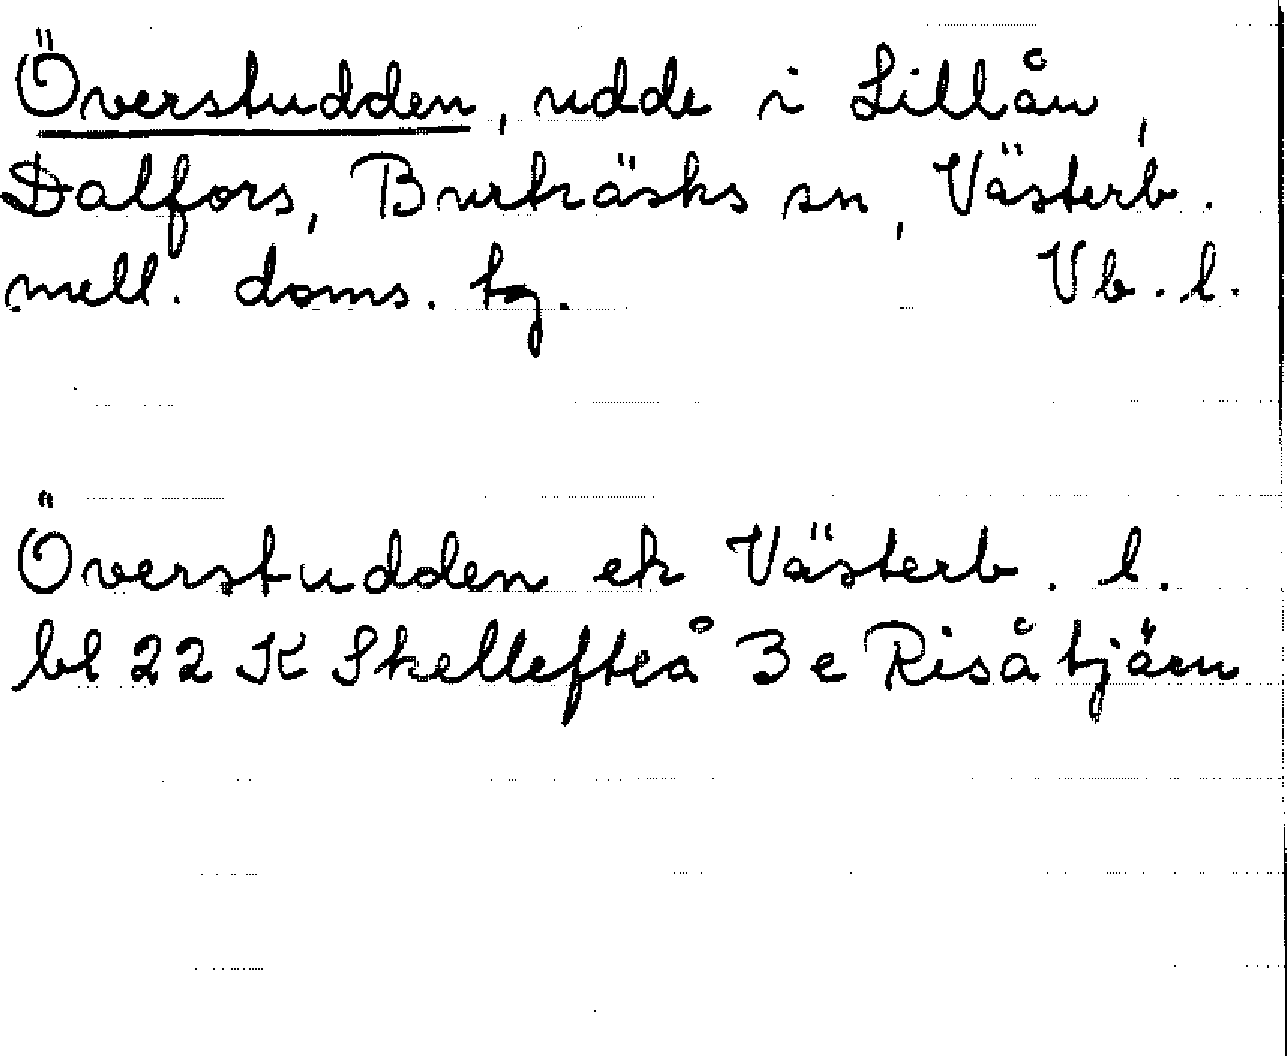 Överstudden, udde i Lillån,
Dalfors, Burträsks sn, Västerb.
mell. doms. tg. Vb. l.
Överstudden ek Västerb. l.
bl 22 K Skellefteå 3 e Risåtjärn